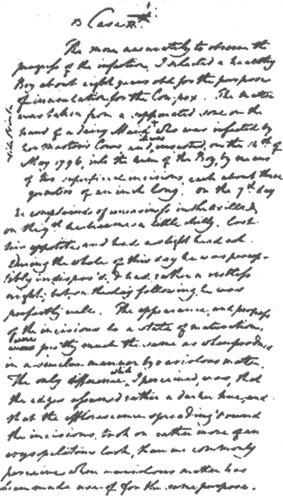 Case
The more accurately to observe the
progress of the infection, I selected a healthy
Boy about eight years old for the purpose
of inoculation for the Cow pox. The matter
was taken from a suppurated sore on the
hand of a dairy Maid who was infected by
her Master's Cows and inserted, on the 14th of
May 1796, into the arm of the Boy, by means
of two superficial incisions, each about three
quarters of an inch long. On the 7th day
he complained of uneasiness in the axilla, &
on the 9th he became a little chilly. Lost
his appetite, and had a slight head ach.
During the whole of this day he was percep-
tibly indispos'd, & had rather a restless
night; but on the day following he was
perfectly well. The appearance and progress
of the incisions to a state of maturation,
were pretty much the same as when produced
in a similar manner by variolous matter.
The only difference I perceived, was, that
the edges assumed rather a darker hue, and
that the efflorescence spreading round
the incisions took on rather more of an
erysipelatous look, than we commonly
perceive when variolous matter has
been made use of for the same purpose.